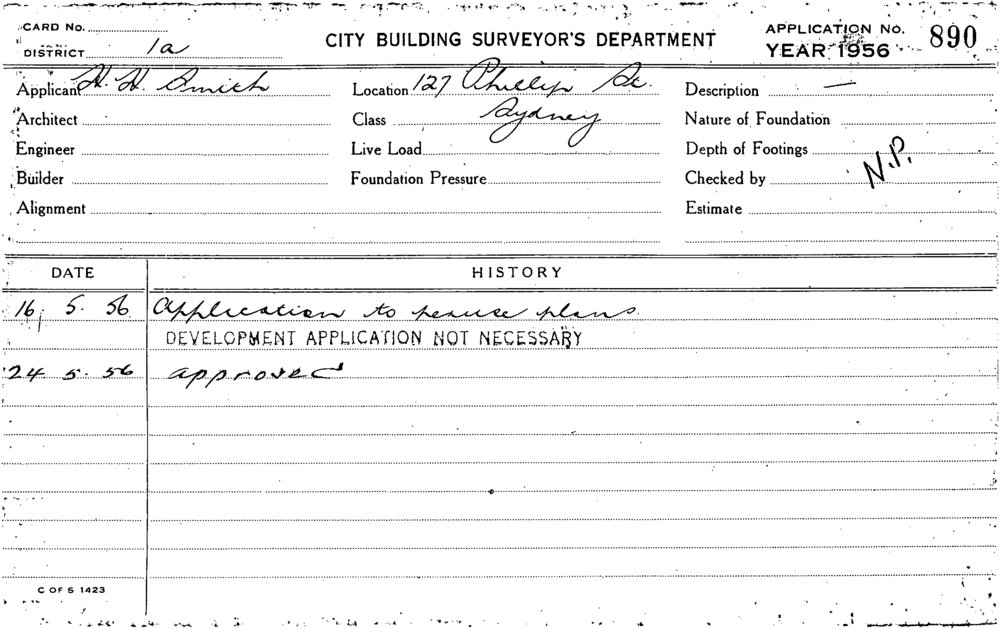 CARD No.
DISTRICT 1a
CITY BUILDING SURVEYOR'S DEPARTMENT
APPLICATION No. 890
YEAR 1956
Applicant H. H. Smith
Location 127 Phillip St.
Description —
Architect
Class Sydney
Nature of Foundation
Engineer
Live Load
Depth of Footings
Builder
Foundation Pressure
Checked by N.P.
Alignment
Estimate
DATE HISTORY
16 5. 56 Application to peruse plans.
DEVELOPMENT APPLICATION NOT NECESSARY
24 5. 56 approved
C OF S 1423